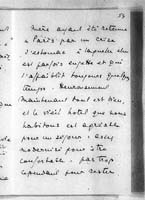 53
Mère ayant été retenue
à Paris par une crise
d'estomac à laquelle elle
est parfois sujette et qui
l'affaiblit toujours quelque
temps. Heureusement
maintenant tout est bien,
et le vieil hotel que nous
habitons est agréable
pour un séjour : assez
modernisé pour être
confortable, pas trop
cependant pour rester